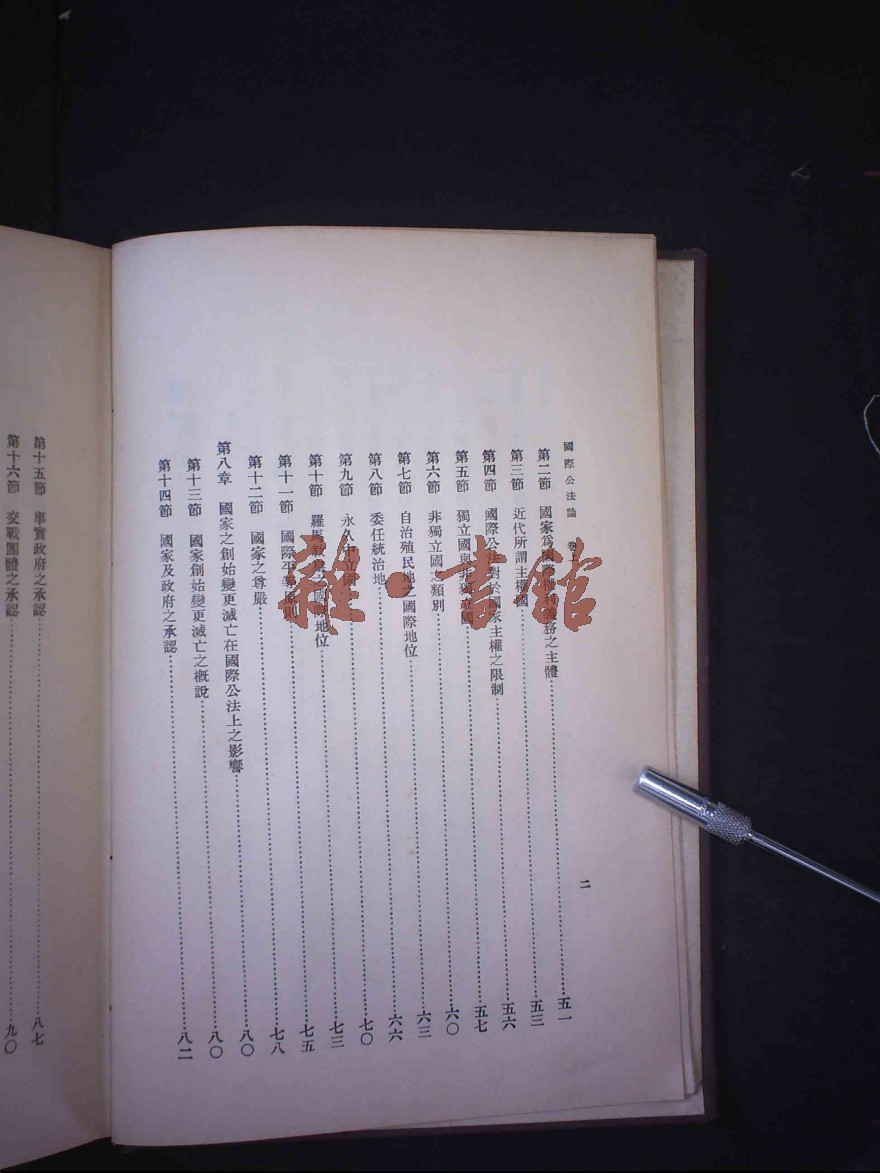 國際公法論 卷 二
第二節 國家爲國際權利義務之主體 五一
第三節 近代所謂主權國 五三
第四節 國際公法對於國家主權之限制 五六
第五節 獨立國與非獨立國 五七
第六節 非獨立國之類別 六〇
第七節 自治殖民地之國際地位 六三
第八節 委任統治地 六六
第九節 永久中立國 七〇
第十節 羅馬教皇之國際地位 七三
第十一節 國際平等原則 七五
第十二節 國家之尊嚴 七八
第八章 國家之創始變更滅亡在國際公法上之影響 八〇
第十三節 國家創始變更滅亡之概說 八〇
第十四節 國家及政府之承認 八二
第十五節 事實政府之承認 八七
第十六節 交戰團體之承認 九〇
雜·書館